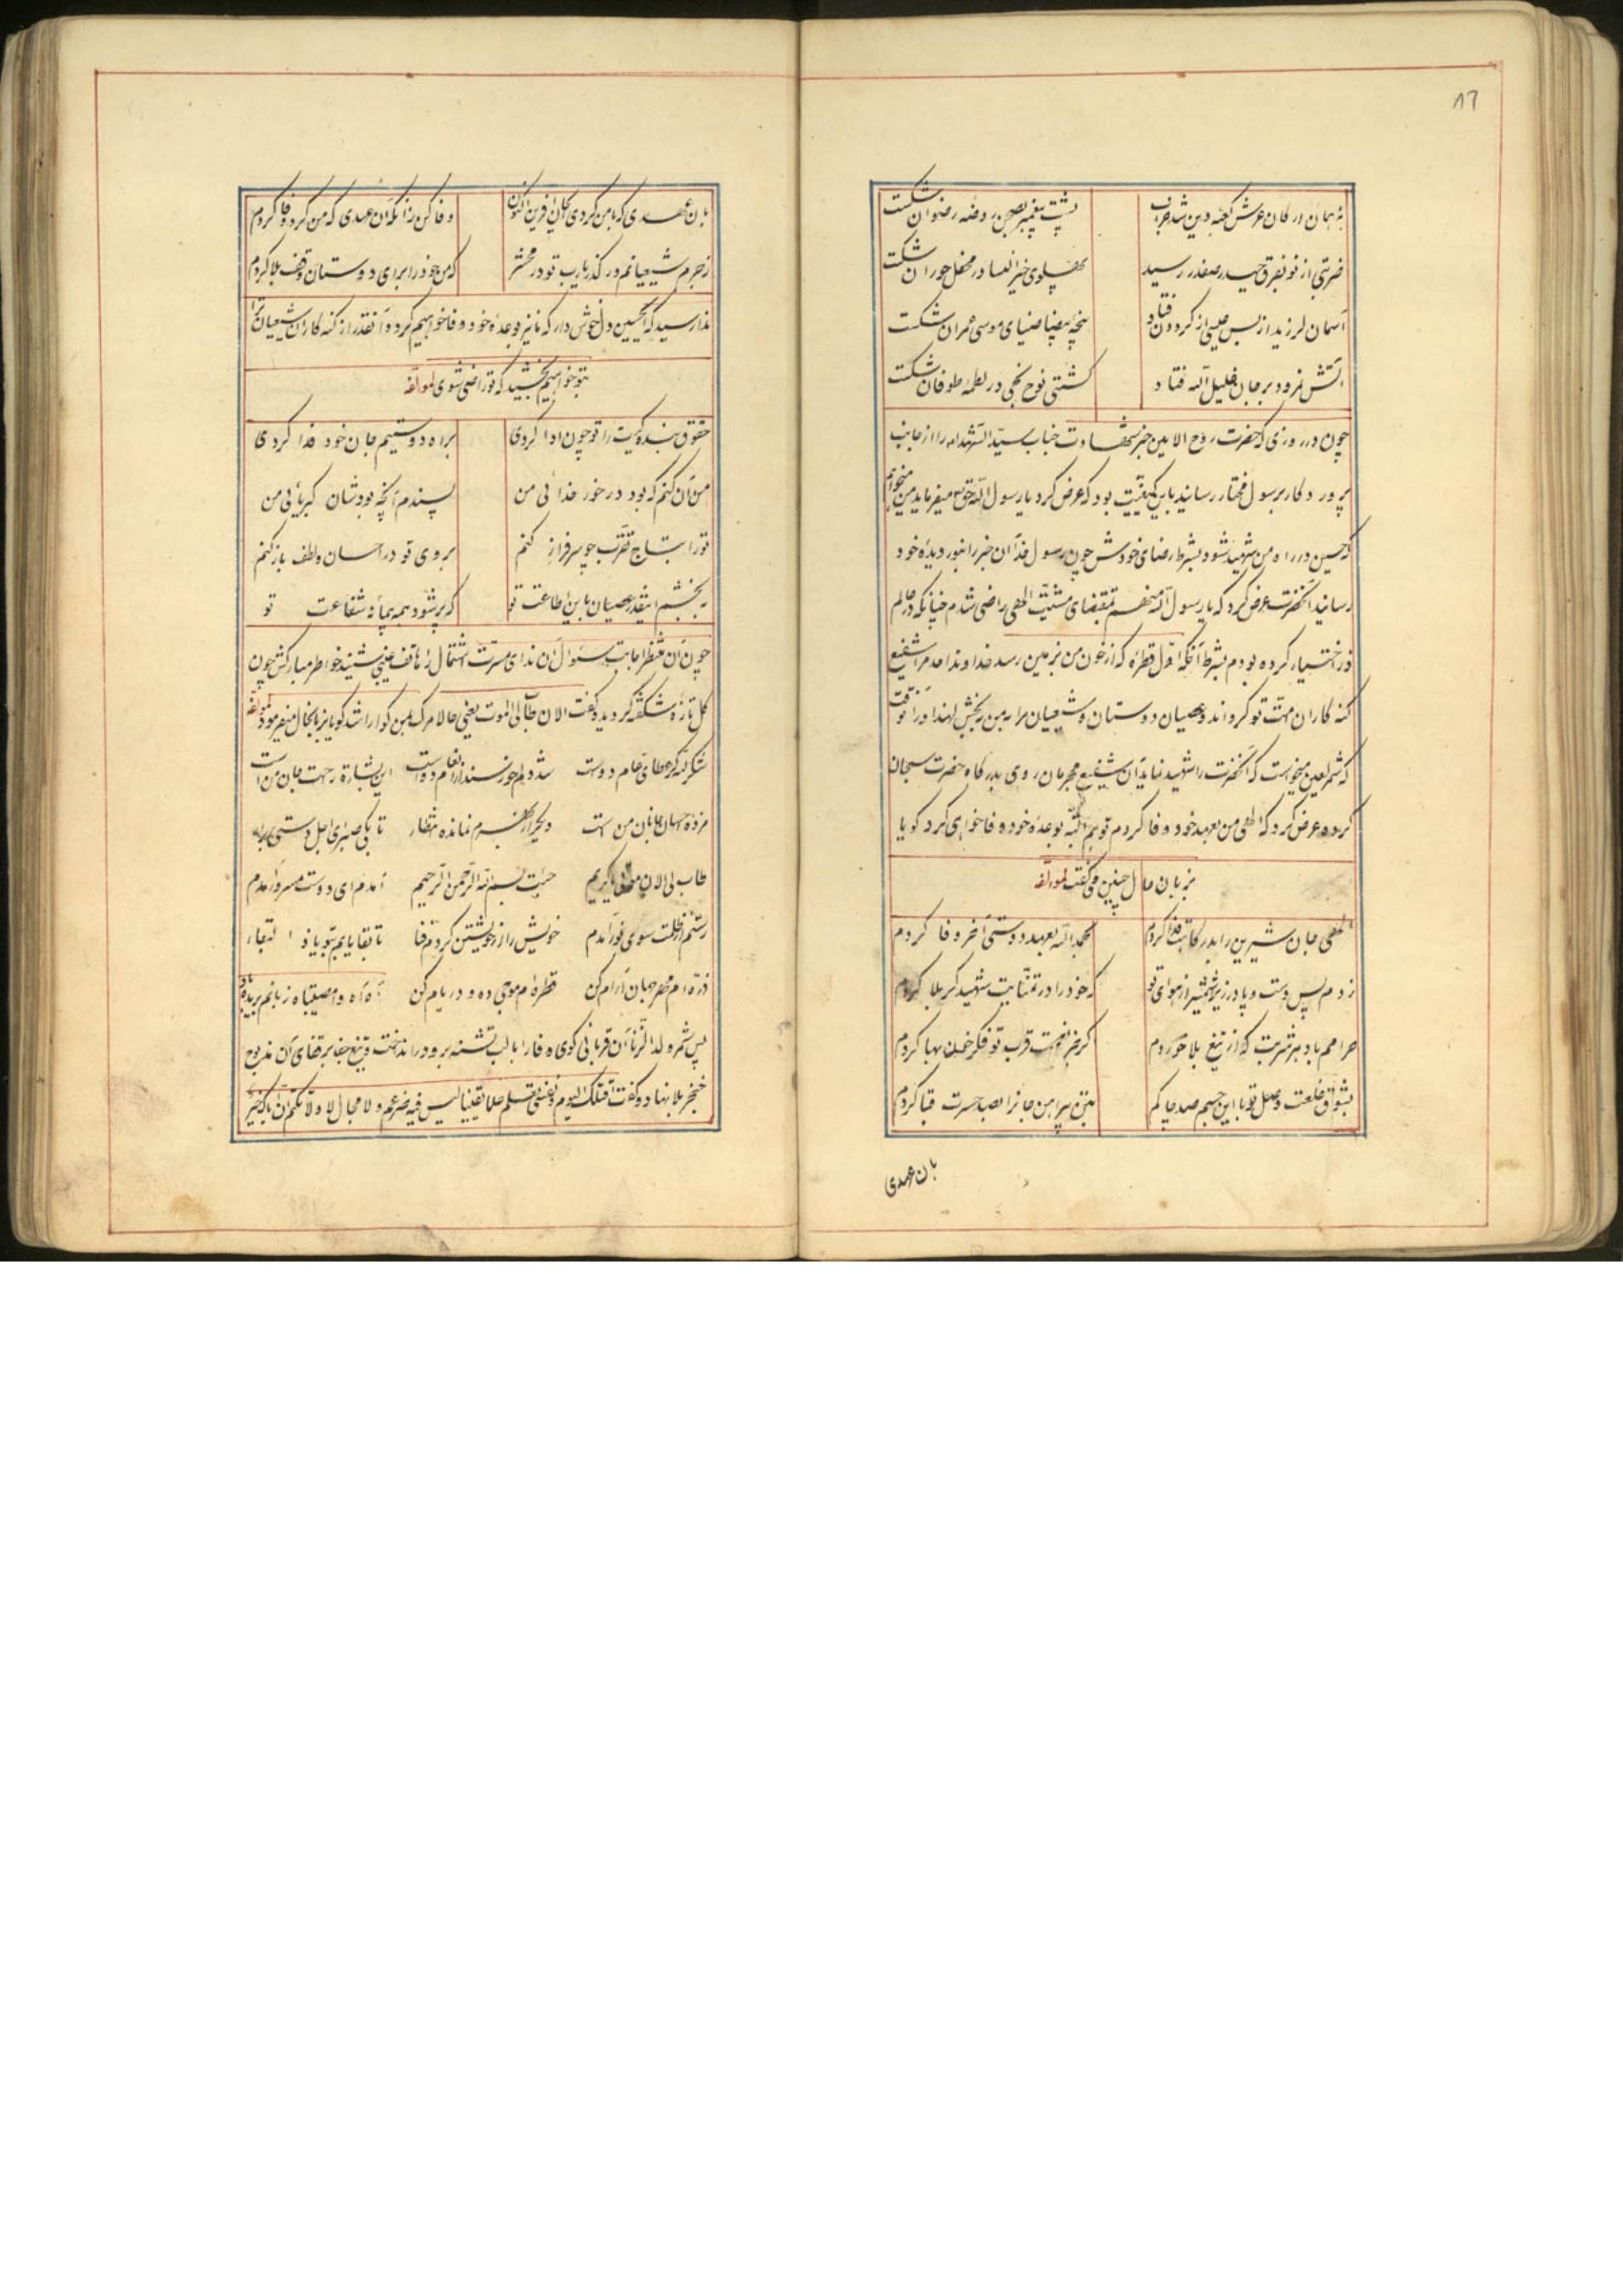 ۸۶
نه همان ارکان عرش کعبه دین شد خراب پشت پیغمبر بصحن روضه رضوان شکست
ضربتی از نو بفرق حیدر صفدر رسید پهلوی خیرالنسا در محفل حوران شکست
آسمان لرزید از بس عیسی از گردون فتاد پنجه بیضا ضیای موسی عمران شکست
آتش نمرود بر جان خلیل الله فتاد کشتی نوح نجی در لطمه طوفان شکست
چون در روزی که حضرت روح الامین خبر شهادت جناب سیدالشهداء را از جانب
پروردکار برسول مختار رسانید باین کیفیت بود که عرض کرد یا رسول الله حق میفرماید من میخواهم
که حسین در راه من شهید شود بشرط رضای خودش چون رسول خدا آن خبر را بنور دیده خود
رسانید آنحضرت عرض کرد که یا رسول الله منهم بمقتضای مشیت الهی راضی شدم چنانکه در عالم
ذر اختیار کرده بودم بشرط آنکه اول قطره که از خون من بزمین رسد خداوند احد مرا شفیع
کنه کاران امت تو کرداند و عصیان دوستان و شیعیان مرا بمن بخشد لهذا در آنوقت
که شمر لعین میخواست که آنحضرت را شهید نماید آن شفیع مجرمان روی بدرگاه حضرت سبحان
کرده عرض کرد که الهی من بعهد خود وفا کردم تو هم البته بوعده خود وفا خواهی کرد کویا
بزبان حال چنین می گفت لمؤلفه
الهی جان شیرین را بدرگاهت فدا کردم بحمدالله بعهد دوستی آخر وفا کردم
زدم بس دست و پا در زیر شمشیر از هوای تو که خود را در تمنایت شهید کربلا کردم
حرامم باد هر شربت که از تیغ بلا خوردم گر بجز نعمت قرب تو فکر خون بها کردم
بشوق خلعت وصل تو با این جسم صد چاکم بتن پیراهن جانرا بصد حسرت قبا کردم
بان عهدی
بان عهدی که با من کردی ای جان آفرین اکنون وفا کن زانکه آن عهدی که من کردم وفا کردم
ز جرم شیعیانم در گذر یارب تو در محشر که من خود را برای دوستان وقف بلا کردم
ندا رسید که ای حسین دل خوش دار که ما نیز بوعده خود وفا خواهیم کرد و آنقدر از کنه کاران شیعیان ترا
بتو خواهیم بخشید که تو راضی شوی لمؤلفه
حقوق بندگیت را تو چون ادا کردی براه دوستیم جان خود فدا کردی
من آن کنم که بود در خور خدائی من پسندم آنچه بود شان کبریائی من
تو را بتاج تقرب چو سرفراز کنم بروی تو در احسان و لطف باز کنم
ببخشم اینقدر عصیان باین اطاعت تو که پر شود همه پیمانه شفاعت تو
چون آن منتظر اجابت سئوال آن ندای مسرت اشتمال را از هاتف غیبی شنید خواطر مبارکش چون
کل تازه شکفته کردید و گفت الان طاب لی الموت یعنی حالا مرک بمن کوارا شد کویا بزبانحال میفرمود لمؤلفه
شکر لله کز عطای عام دوست شد دلم خورسند از انعام دوست این بشارة رهت جان من است
مژده احسان جانان من است دیگر از بهرم نمانده انتظار تا بکی صبر ای اجل دستی برآر
طاب لی الان موتی یا کریم جئت بسم الله الرحمن الرحیم آمدم ای دوست مسرور آمدم
رستم از ظلمت سوی نور آمدم خویش را از خویشتن کردم فنا تا بقا یابم بتو یا ذا البقاء
ذره ام مهر جهان آرام کن قطره ام موجی ده و دریام کن آه آه وا مصیبتاه زبانم بریده باد
پس شمر ولد الزنا آن قربانی کوی وفا را با لب تشنه برو در انداخت و تیغ جفا بر قفای آن مذبوح
خنجر بلا نهاد و گفت اقتلک الیوم و نفسی تعلم علما یقینا لیس فیه مزعم ولا مجال لا ولا تکتم ان اباک خیر